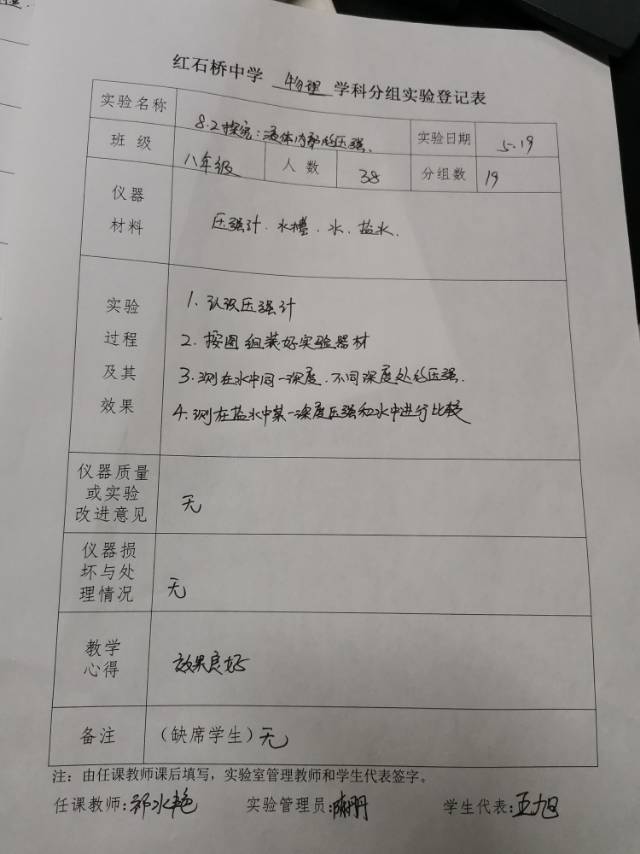 红石桥中学 物理 学科分组实验登记表
实验名称 8.2探究:液体内部的压强. 实验日期 5.19
班级 八年级 人数 38 分组数 19
仪器
材料
压强计.水槽.水.盐水.
实验
过程
及其
效果
1.认识压强计
2.按图组装好实验器材
3.测在水中同一深度.不同深度处的压强.
4.测在盐水中某一深度压强和水中进行比较
仪器质量
或实验
改进意见
无
仪器损
坏与处
理情况
无
教学
心得
效果良好
备注 (缺席学生)无
注:由任课教师课后填写,实验室管理教师和学生代表签字。
任课教师:祁水艳 实验管理员: 学生代表:王旭